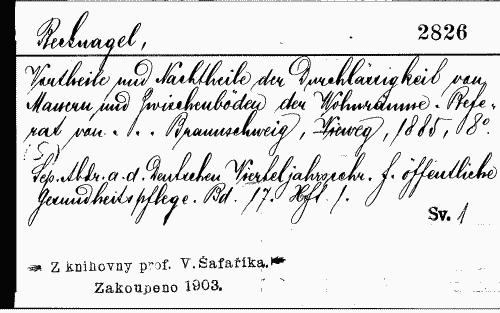 Recknagel, 2826
Vortheile und Nachtheile der Durchlässigkeit von
Mauern und Zwischenböden der Wohnräume. Refe-
rat von . . . Braunschweig, Vieweg, 1885, 8°.
(S.)
Sep. Abdr. a. d. Deutschen Vierteljahrsschr. f. öffentliche
Gesundheitspflege. Bd. 17. Hft. 1.
Sv. 1
Z knihovny prof. V. Šafaříka.
Zakoupeno 1903.